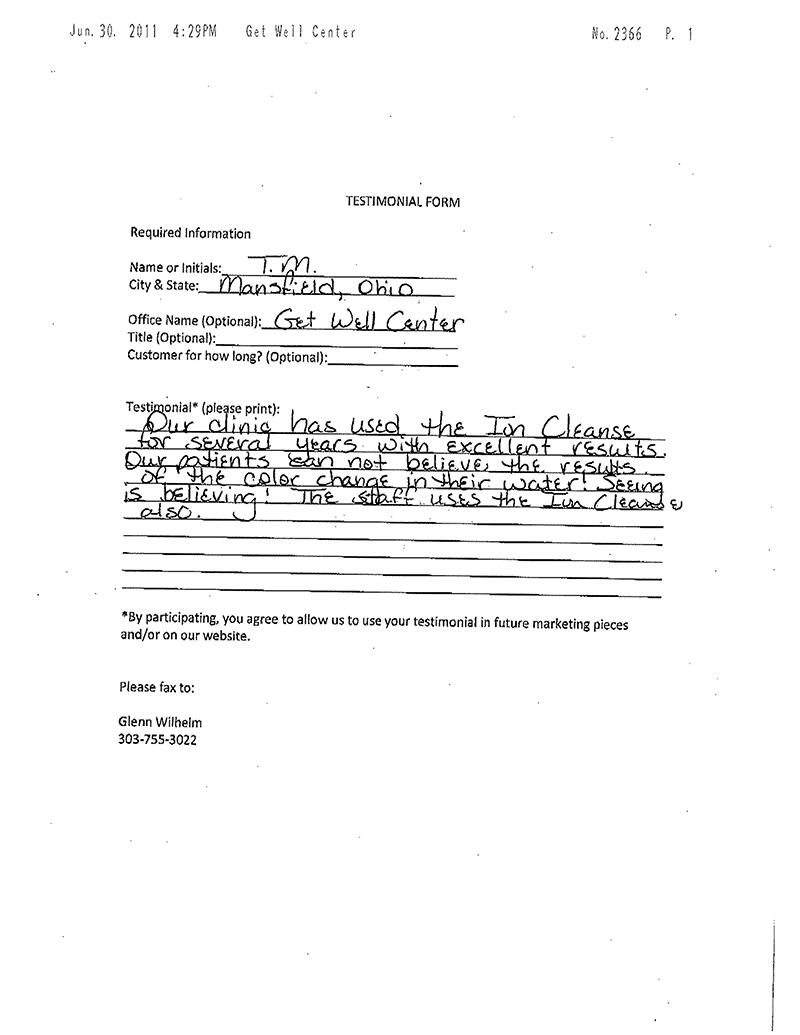 Jun. 30. 2011 4:29PM Get Well Center No. 2366 P. 1
TESTIMONIAL FORM
Required Information
Name or Initials: T. M.
City & State: Mansfield, Ohio
Office Name (Optional): Get Well Center
Title (Optional):
Customer for how long? (Optional):
Testimonial* (please print):
Our clinic has used the Ion Cleanse
for several years with excellent results.
Our patients can not believe, the results
of the color change in their water! Seeing
is believing! The staff uses the Ion Cleanse
also.
*By participating, you agree to allow us to use your testimonial in future marketing pieces
and/or on our website.
Please fax to:
Glenn Wilhelm
303-755-3022